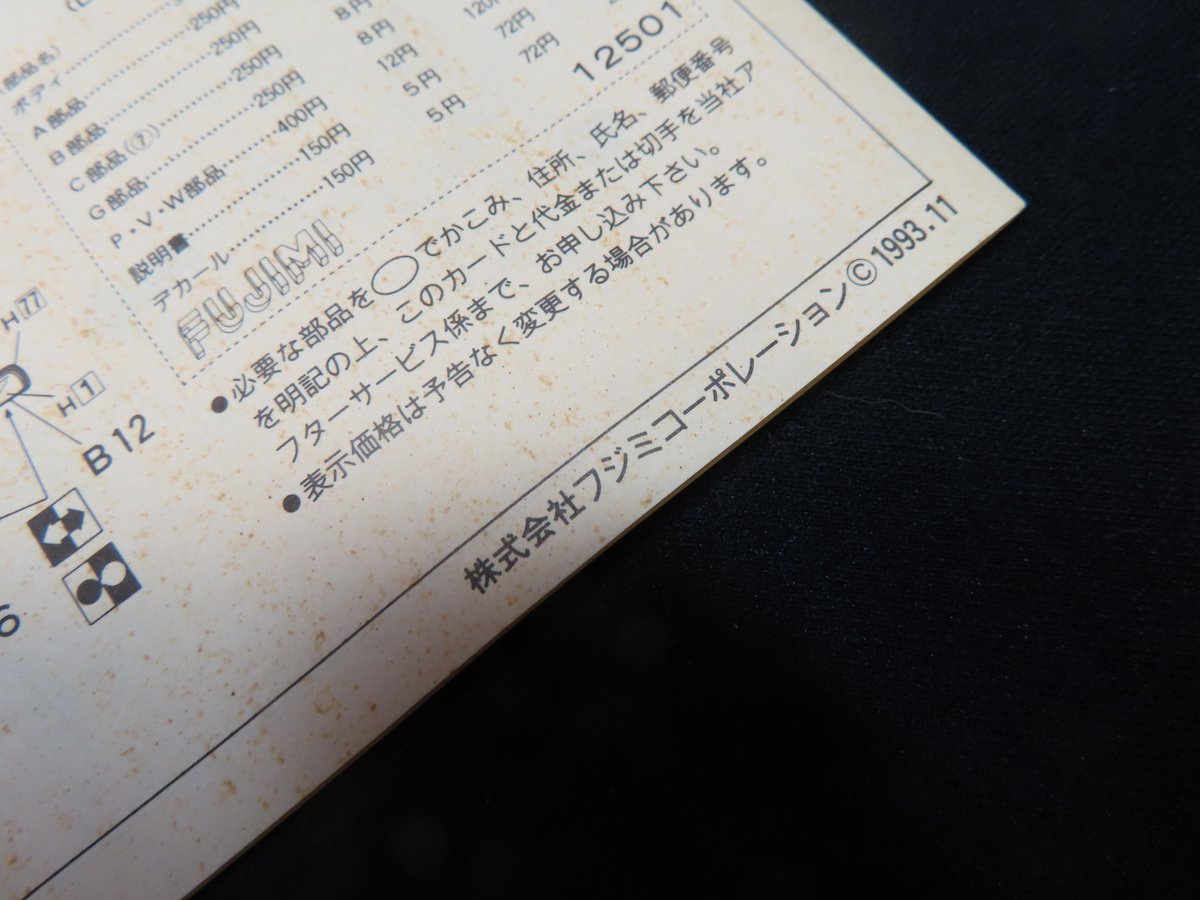 部品名)
ボディ
A部品 250円 8円 120円
B部品 250円 8円 72円
C部品(⑦) 250円 12円 72円
G部品 250円 5円
P・V・W部品 400円 5円
説明書 150円
デカール 150円
12501
FUJIMI
●必要な部品を◯でかこみ、住所、氏名、郵便番号
を明記の上、このカードと代金または切手を当社ア
フターサービス係まで、お申し込み下さい。
●表示価格は予告なく変更する場合があります。
株式会社フジミコーポレーション©1993.11
H77
H1
B12
6